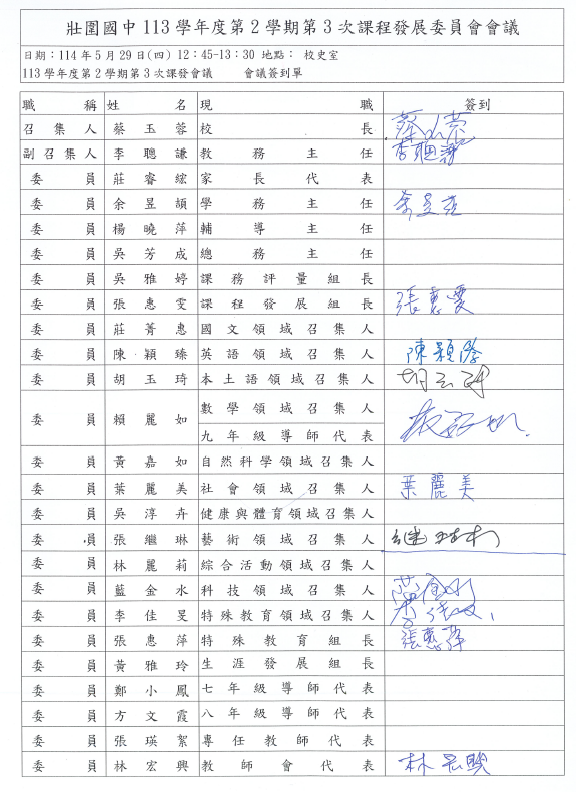 壯圍國中 113 學年度第 2 學期第 3 次課程發展委員會會議
日期：114 年 5 月 29 日(四) 12：45-13：30 地點： 校史室
113 學年度第 2 學期第 3 次課發會議 會議簽到單
職稱 姓名 現職 簽到
召集人 蔡玉蓉 校長
副召集人 李聰謙 教務主任 李聰謙
委員 莊睿綋 家長代表
委員 余昱頡 學務主任
委員 楊曉萍 輔導主任
委員 吳芳成 總務主任
委員 吳雅婷 課務評量組長
委員 張惠雯 課程發展組長 張惠雯
委員 莊菁惠 國文領域召集人
委員 陳穎臻 英語領域召集人 陳穎臻
委員 胡玉琦 本土語領域召集人 胡玉琦
委員 賴麗如 數學領域召集人
九年級導師代表
委員 黃嘉如 自然科學領域召集人
委員 葉麗美 社會領域召集人 葉麗美
委員 吳淳卉 健康與體育領域召集人
委員 張繼琳 藝術領域召集人
委員 林麗莉 綜合活動領域召集人
委員 藍金水 科技領域召集人 藍金水
委員 李佳旻 特殊教育領域召集人
委員 張惠萍 特殊教育組長 張惠萍
委員 黃雅玲 生涯發展組長
委員 鄭小鳳 七年級導師代表
委員 方文霞 八年級導師代表
委員 張瑛絮 專任教師代表
委員 林宏興 教師會代表 林宏興